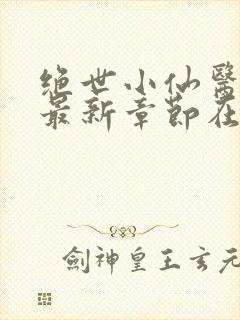 绝世小仙醫
最新章節在
劍神皇王玄元